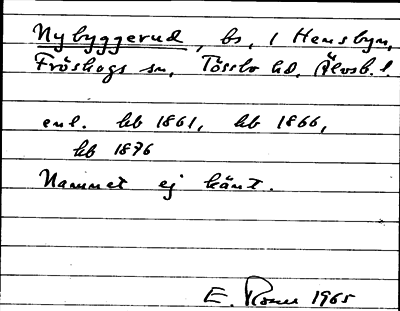 Nybyggerud, bs, i Hensbyn,
Fröskogs sn, Tössbo hd, Älvsb. l
enl. hb 1861, hb 1866,
hb 1876
Namnet ej känt.
E. 1965